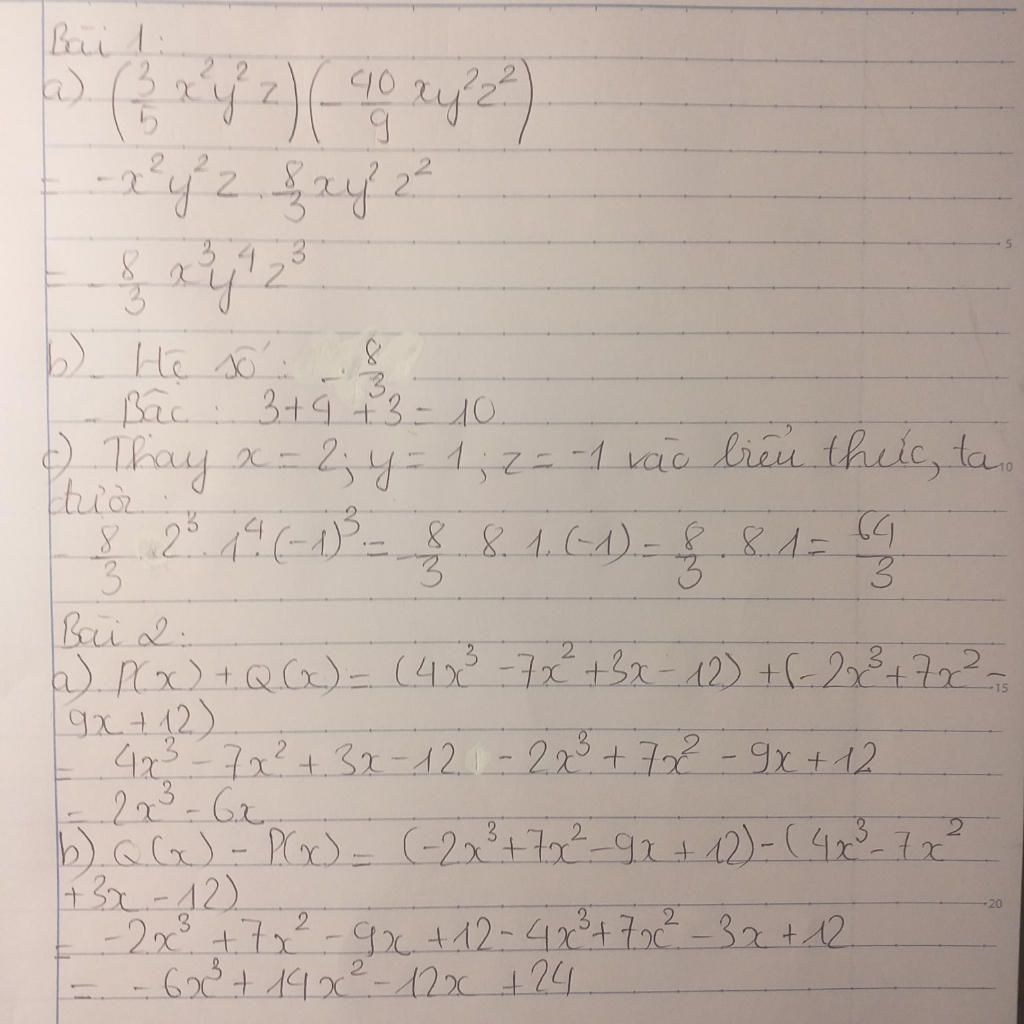 Bài 1:
a) (3/5 x²y²z)(-40/9 xy²z²)
= -x²y²z . 8/3 xy² z²
= - 8/3 x³y⁴z³
b) - Hệ số: - 8/3
- Bậc : 3+4+3=10
c) Thay x=2; y=1; z=-1 vào biểu thức, ta
được :
- 8/3 . 2³ . 1⁴ . (-1)³ = - 8/3 . 8 . 1 . (-1) = 8/3 . 8 . 1 = 64/3
Bài 2:
a) P(x) + Q(x) = (4x³ - 7x² + 3x - 12) + (-2x³ + 7x² -
9x + 12)
= 4x³ - 7x² + 3x - 12 - 2x³ + 7x² - 9x + 12
= 2x³ - 6x
b) Q(x) - P(x) = (-2x³ + 7x² - 9x + 12) - (4x³ - 7x²
+ 3x - 12)
= -2x³ + 7x² - 9x + 12 - 4x³ + 7x² - 3x + 12
= -6x³ + 14x² - 12x + 24
5
10
15
20